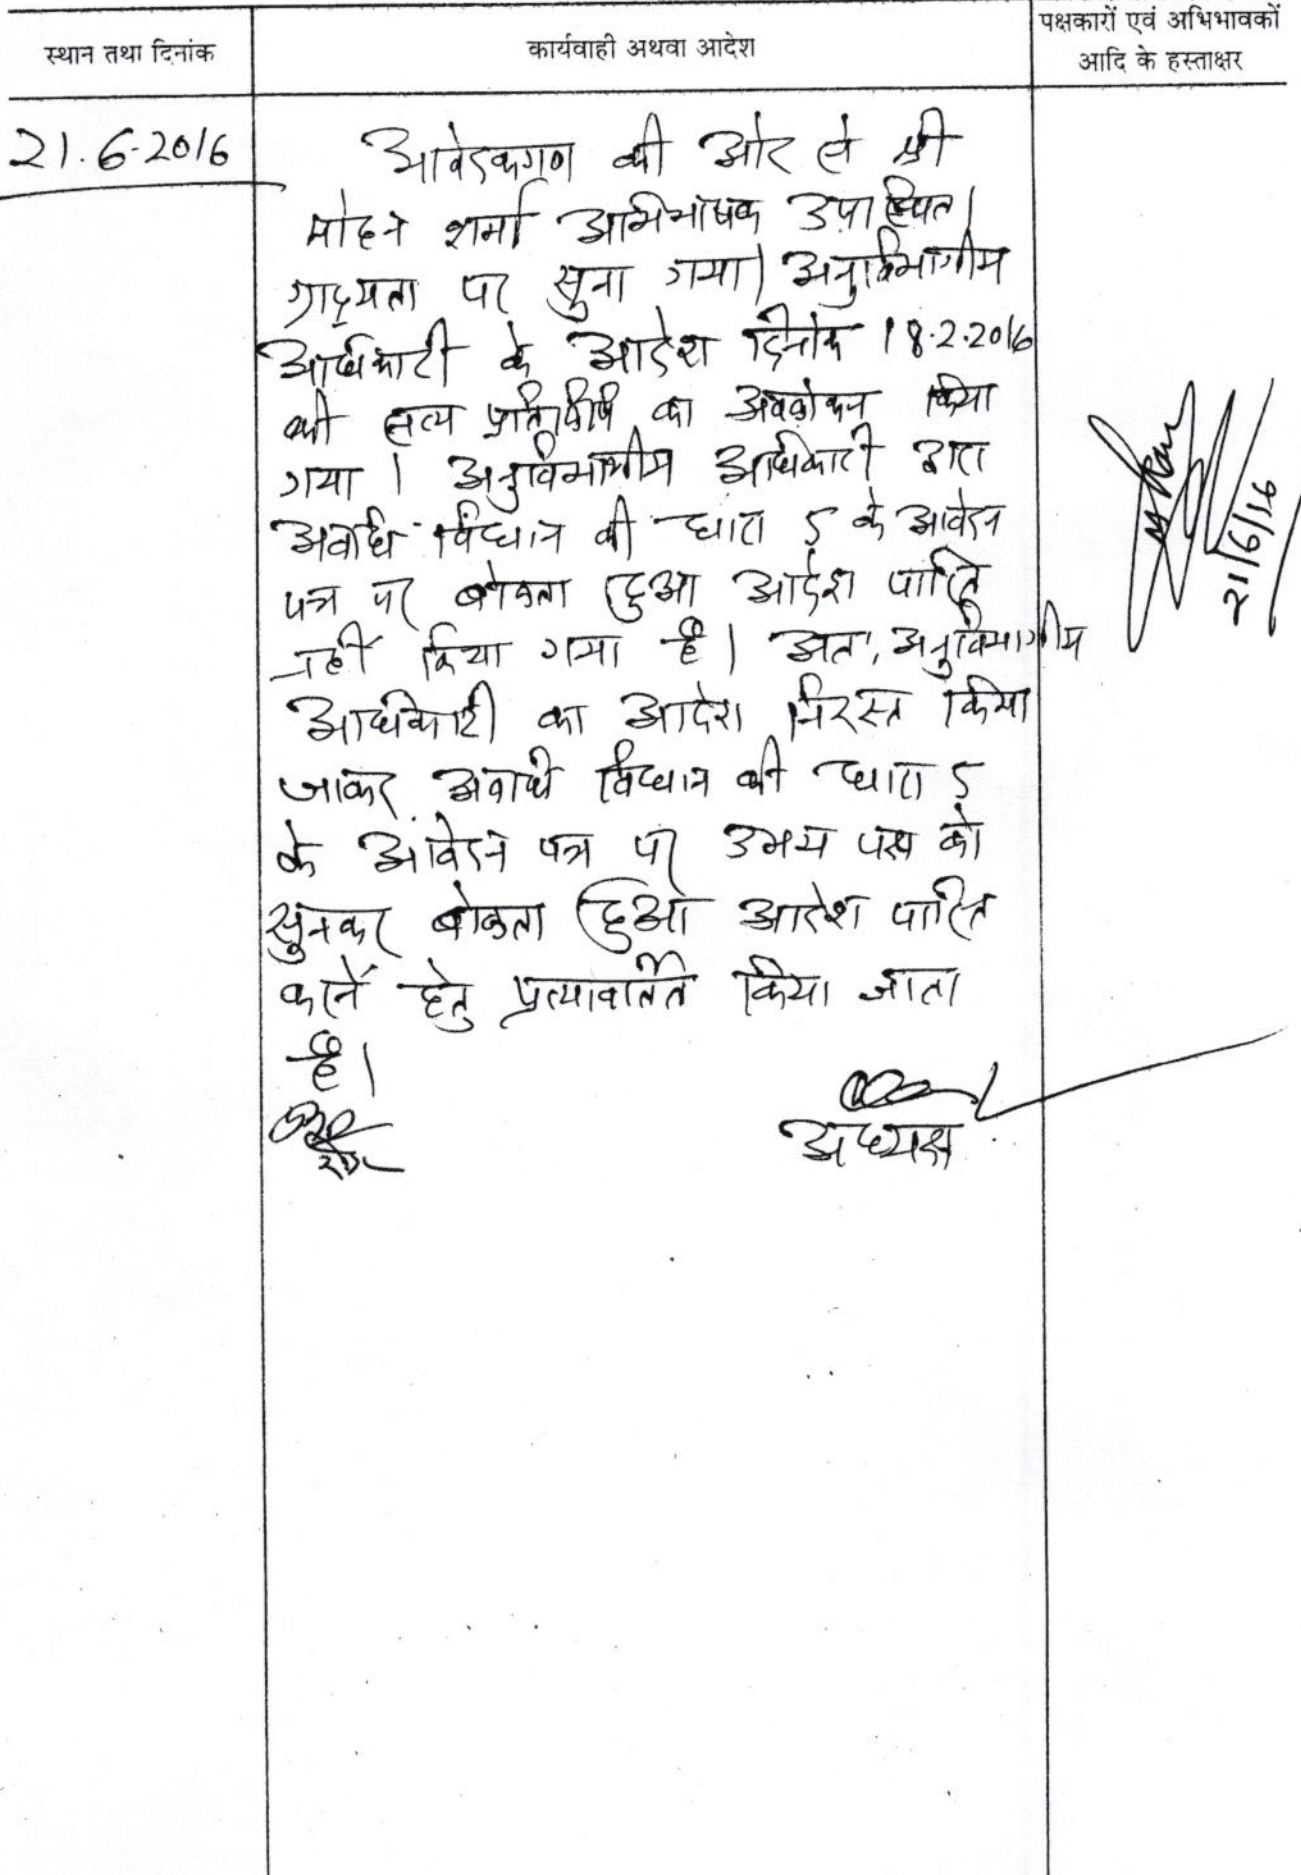 स्थान तथा दिनांक
कार्यवाही अथवा आदेश
पक्षकारों एवं अभिभावकों
आदि के हस्ताक्षर
21.6.2016
आवेदकगण की ओर से श्री
मोहन शर्मा अभिभाषक उपस्थित।
ग्राह्यता पर सुना गया। अनुविभागीय
अधिकारी के आदेश दिनांक 18.2.2016
की सत्य प्रतिलिपि का अवलोकन किया
गया। अनुविभागीय अधिकारी द्वारा
अवधि विधान की धारा 5 के आवेदन
पत्र पर बोलता हुआ आदेश पारित
नहीं किया गया है। अतः अनुविभागीय
अधिकारी का आदेश निरस्त किया
जाकर अवधि विधान की धारा 5
के आवेदन पत्र पर उभय पक्ष को
सुनकर बोलता हुआ आदेश पारित
करने हेतु प्रत्यावर्तित किया जाता
है।
अध्यक्ष
21/6/16